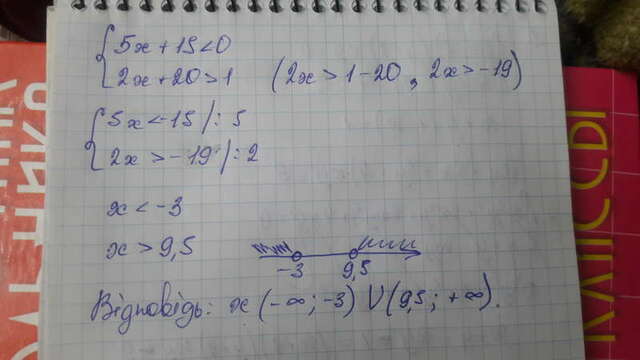 5x + 15 < 0
2x + 20 > 1 (2x > 1 - 20, 2x > -19)
5x < -15 /: 5
2x > -19 /: 2
x < -3
x > 9,5
-3 9,5
Відповідь: x (-∞; -3) U (9,5; +∞).
КЛАССЫ